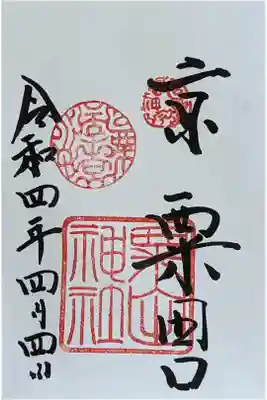 京 粟田口
粟田神社
令和四年四月四日